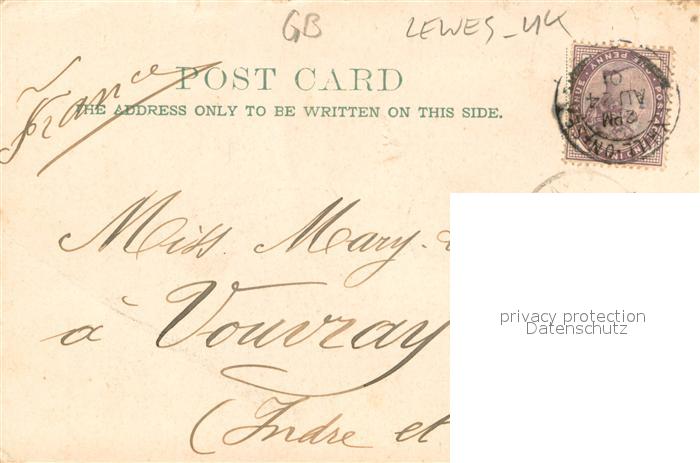 GB LEWES_UK
France
POST CARD
THE ADDRESS ONLY TO BE WRITTEN ON THIS SIDE.
2 PM
AU 4
01
Miss Mary
à Vouvray
(Indre et
privacy protection
Datenschutz